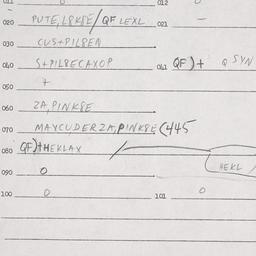 011 0 012 0
020 PUTE, L8K8E/QF LEXL 021 –
030 CUS+PIL8EN
040 S+PIL8ECAXOP 041 QF)+ Q SYN
050 +
060 ZA, PINK8E
070 MAYCUDERZA, PINK8E (445
080 QF)+HEKLAX
HEKL
090 0
100 0 101 0